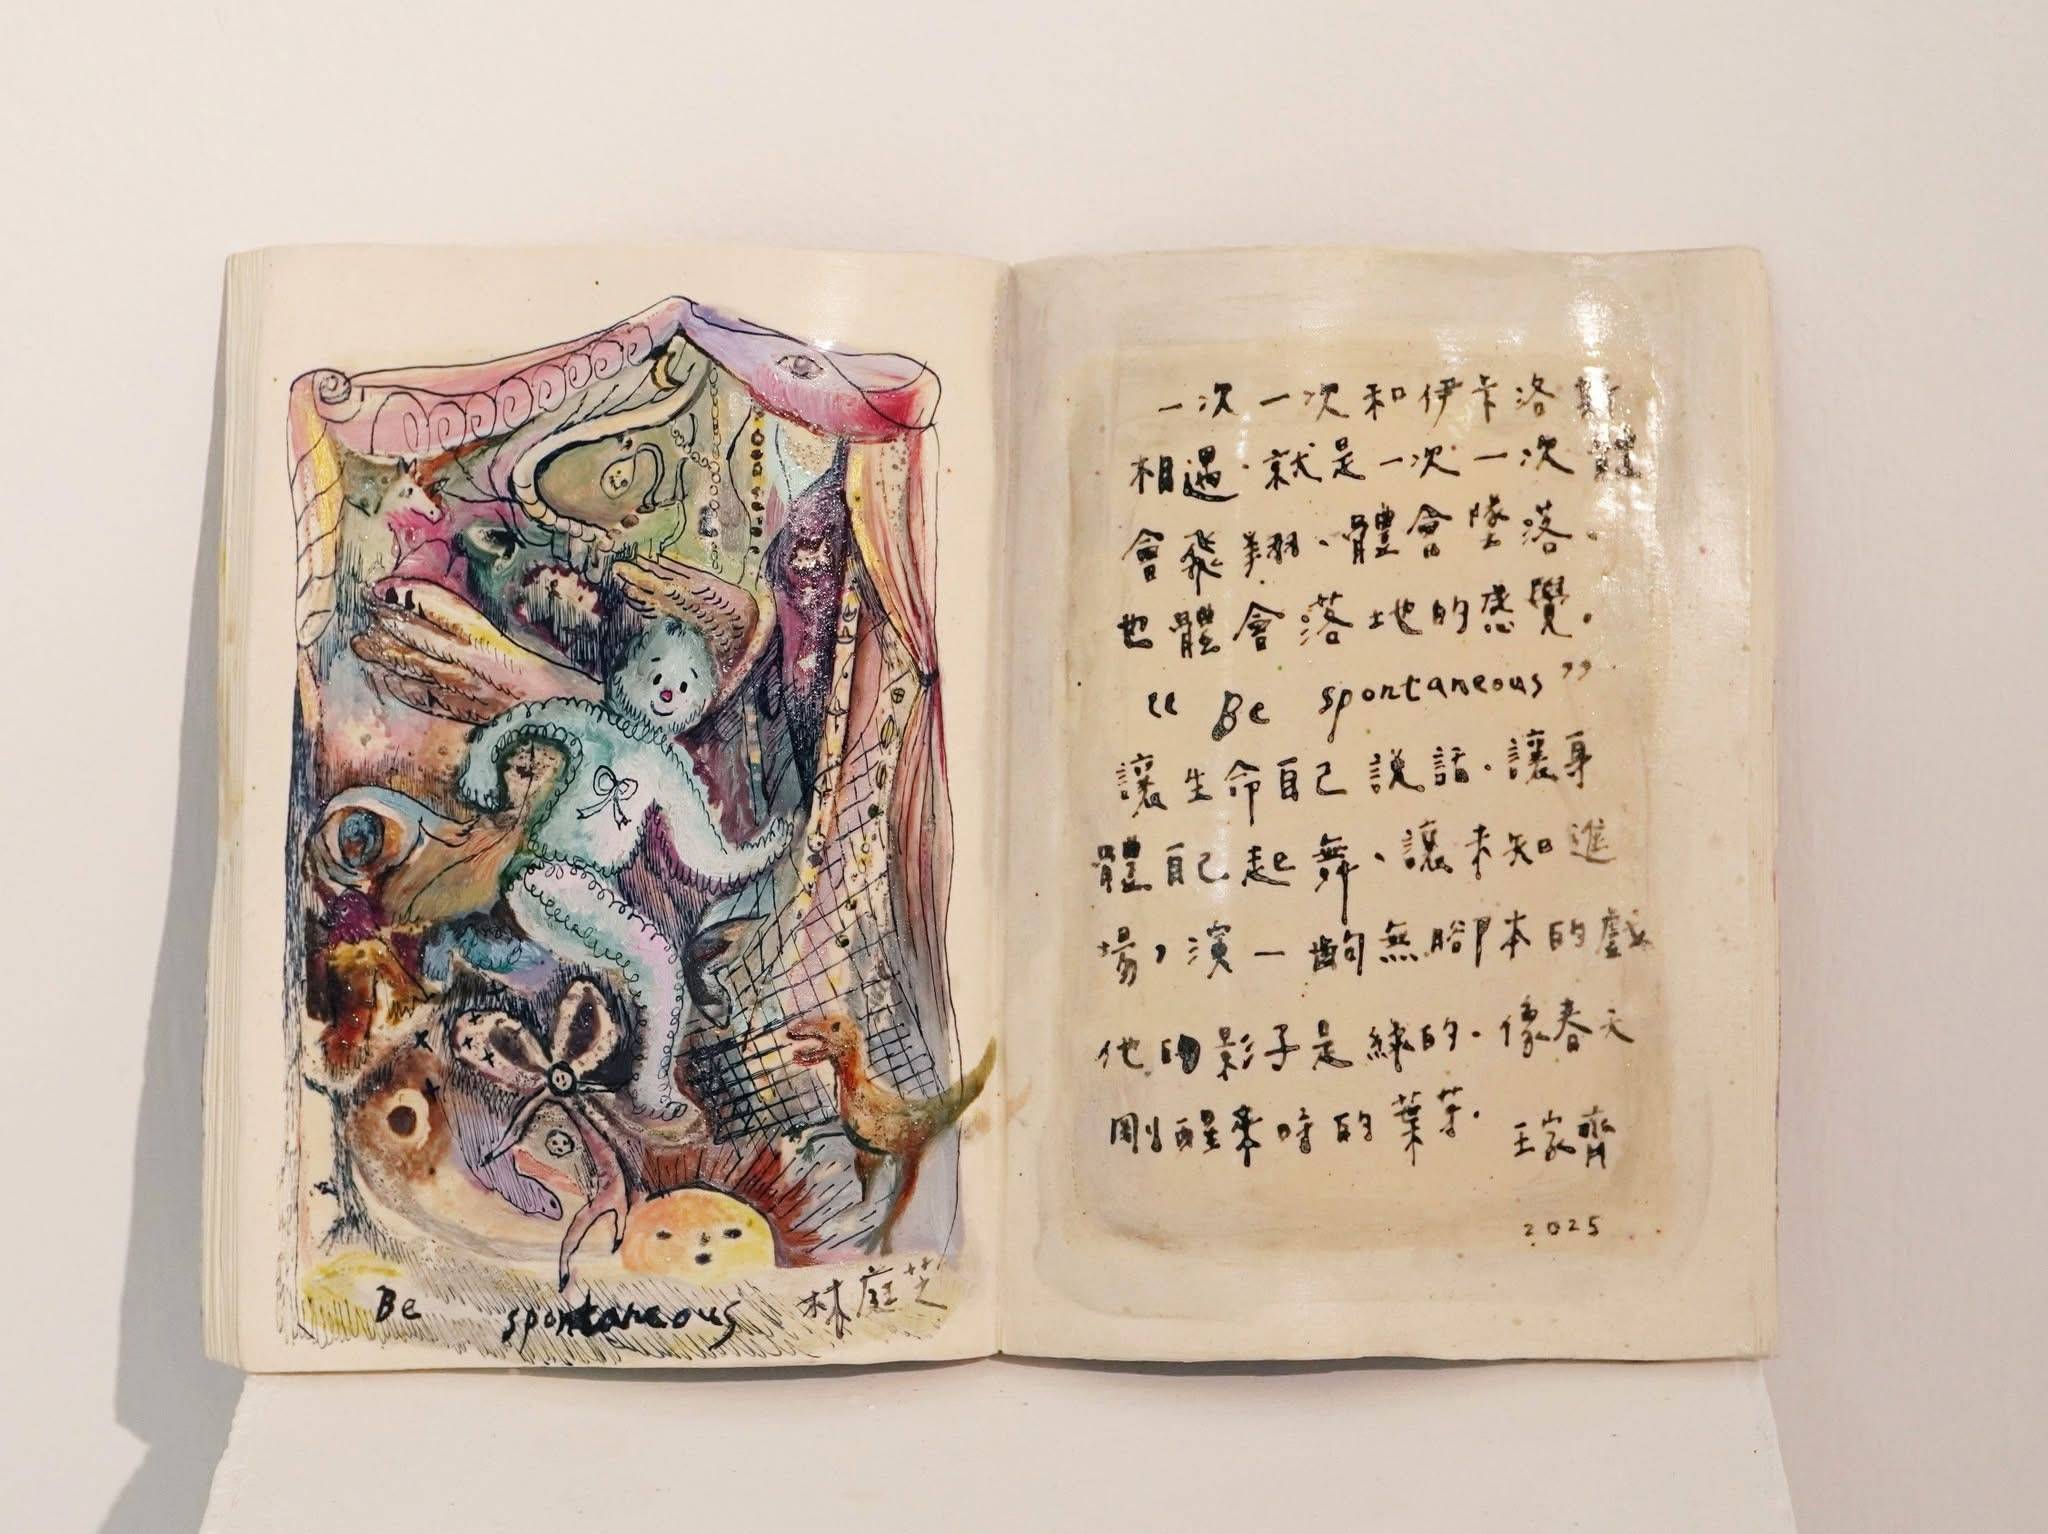 Be spontaneous
林庭芝
一次一次和伊卡洛斯
相遇.就是一次一次體
會飛翔、體會墜落.
也體會落地的感覺.
“ Be spontaneous ”
讓生命自己說話.讓身
體自己起舞、讓未知進
場,演一齣無腳本的戲
他的影子是綠的.像春天
剛醒來時的葉芽.
王家齊
2025